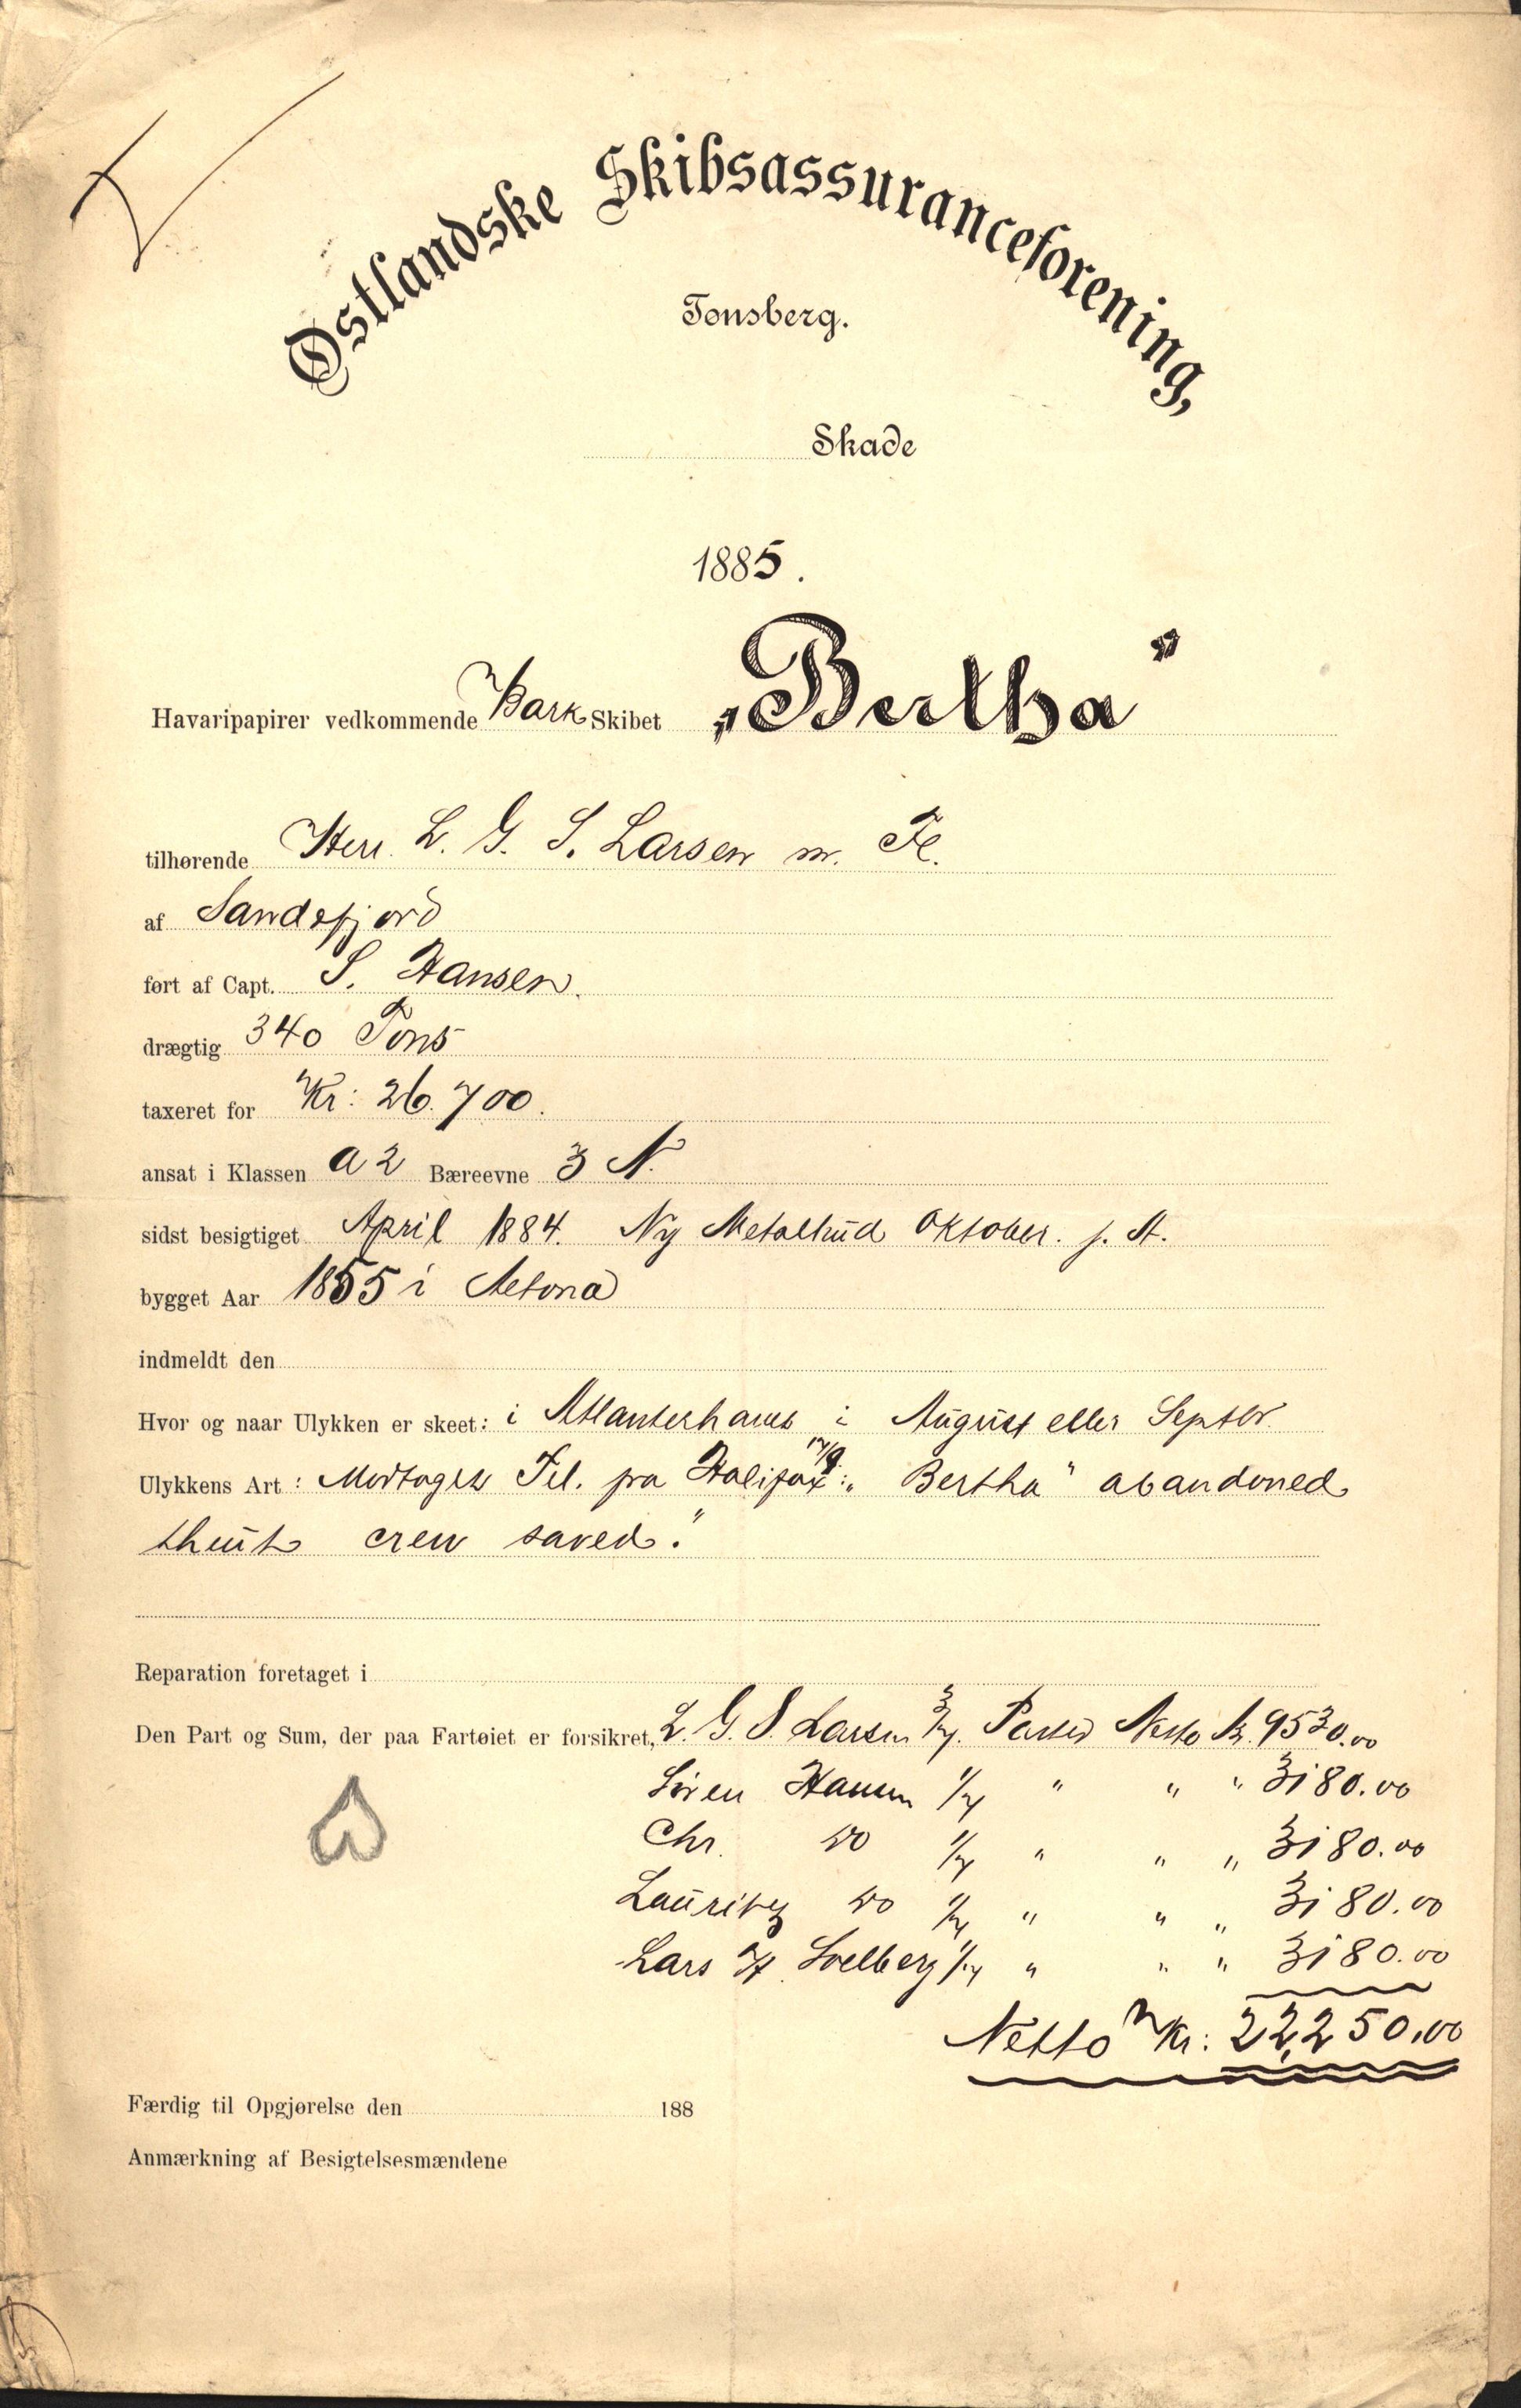 Østlandske Skibsassuranceforening,
Tønsberg.
Skade
1885.
Havaripapirer vedkommende Bark Skibet „Bertha"
tilhørende Herr L. G. S. Larsen m. Fl.
af Sandefjord
ført af Capt. S. Hansen.
drægtig 340 Tons
taxeret for Kr: 26.700.
ansat i Klassen A 2 Bæreevne 3 N.
sidst besigtiget April 1884. Ny Metalhud Oktober. s. A.
bygget Aar 1855 i Altona
indmeldt den
Hvor og naar Ulykken er skeet: i Atlanterhavet i August eller Septbr.
Ulykkens Art: Modtaget Tel. fra Halifax 17/9: „Bertha" abandoned
crew saved."
Reparation foretaget i
Den Part og Sum, der paa Fartøiet er forsikret, L. G. S. Larsen 3/7. Parter Netto Kr. 9530.00
Sören Hansen 1/7 " " " 3180.00
Chr. do 1/7 " " " 3180.00
Lauritz do 1/7 " " " 3180.00
Lars H. Soelberg 1/7 " " " 3180.00
Netto Kr: 22,250.00
Færdig til Opgjørelse den 188
Anmærkning af Besigtelsesmændene